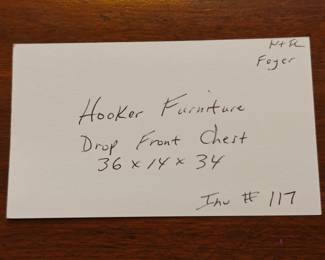 Foyer
Hooker Furniture
Drop Front Chest
36 x 14 x 34
Inv # 117